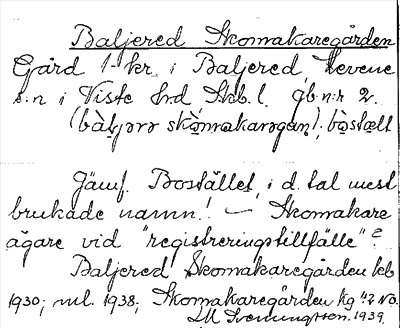 Baljered Skomakaregården
Gård 1 kr. i Baljered, Levene
s:n i Viste hrd, Skb. l. gb n:r 2.
(bàljərə skòmakarəgan); bòstælt
Jämf. Bostället, i d. tal mest
brukade namn! — Skomakare
ägare vid "registreringstillfälle"?
Baljered Skomakaregården kb
1930; ml. 1938; Skomakaregården kg
M Svenningsson. 1939